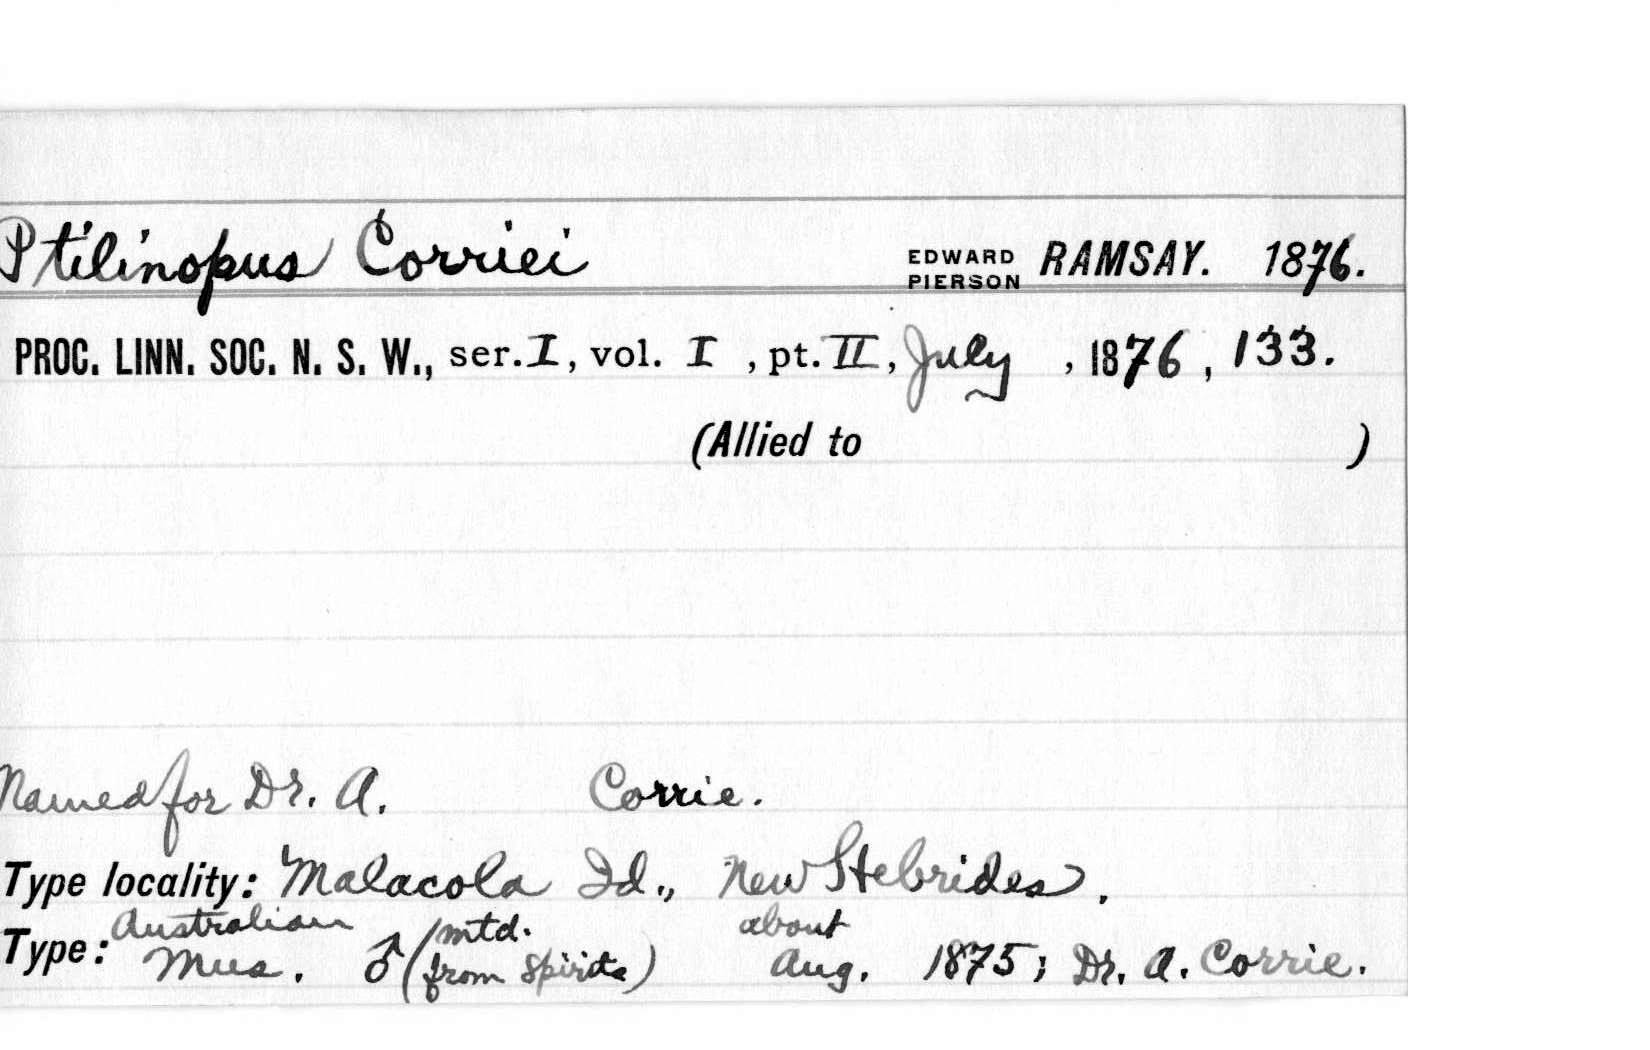 Ptilinopus Corriei EDWARD PIERSON RAMSAY. 1876.
PROC. LINN. SOC. N. S. W., ser. I, vol. I , pt. II, July , 1876 , 133.
(Allied to )
Named for Dr. A. Corrie.
Type locality: Malacola Id., New Hebrides.
Type: Australian Mus. ♂ (mtd. from spirits) about Aug. 1875; Dr. A. Corrie.